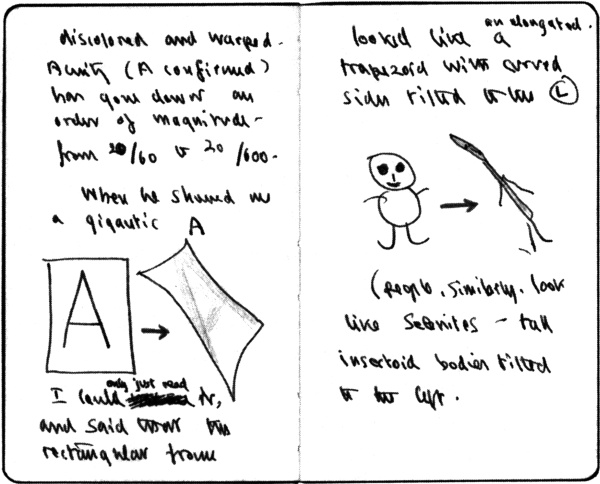 discolored and warped.
Acuity (A confirmed)
has gone down an
order of magnitude –
from 20/60 to 20/600.
When he showed me
a gigantic A
A
only just read
I could it,
and said that the
rectangular frame
looked like an elongated
trapezoid with curved
sides tilted to the L
(People, similarly, look
like Selenites – tall
insectoid bodies tilted
to the left.